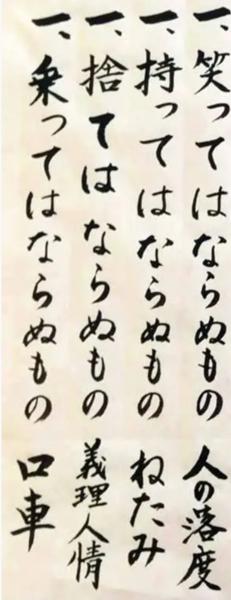 一、笑ってはならぬもの 人の落度
一、持ってはならぬもの ねたみ
一、捨てはならぬもの 義理人情
一、乗ってはならぬもの 口車